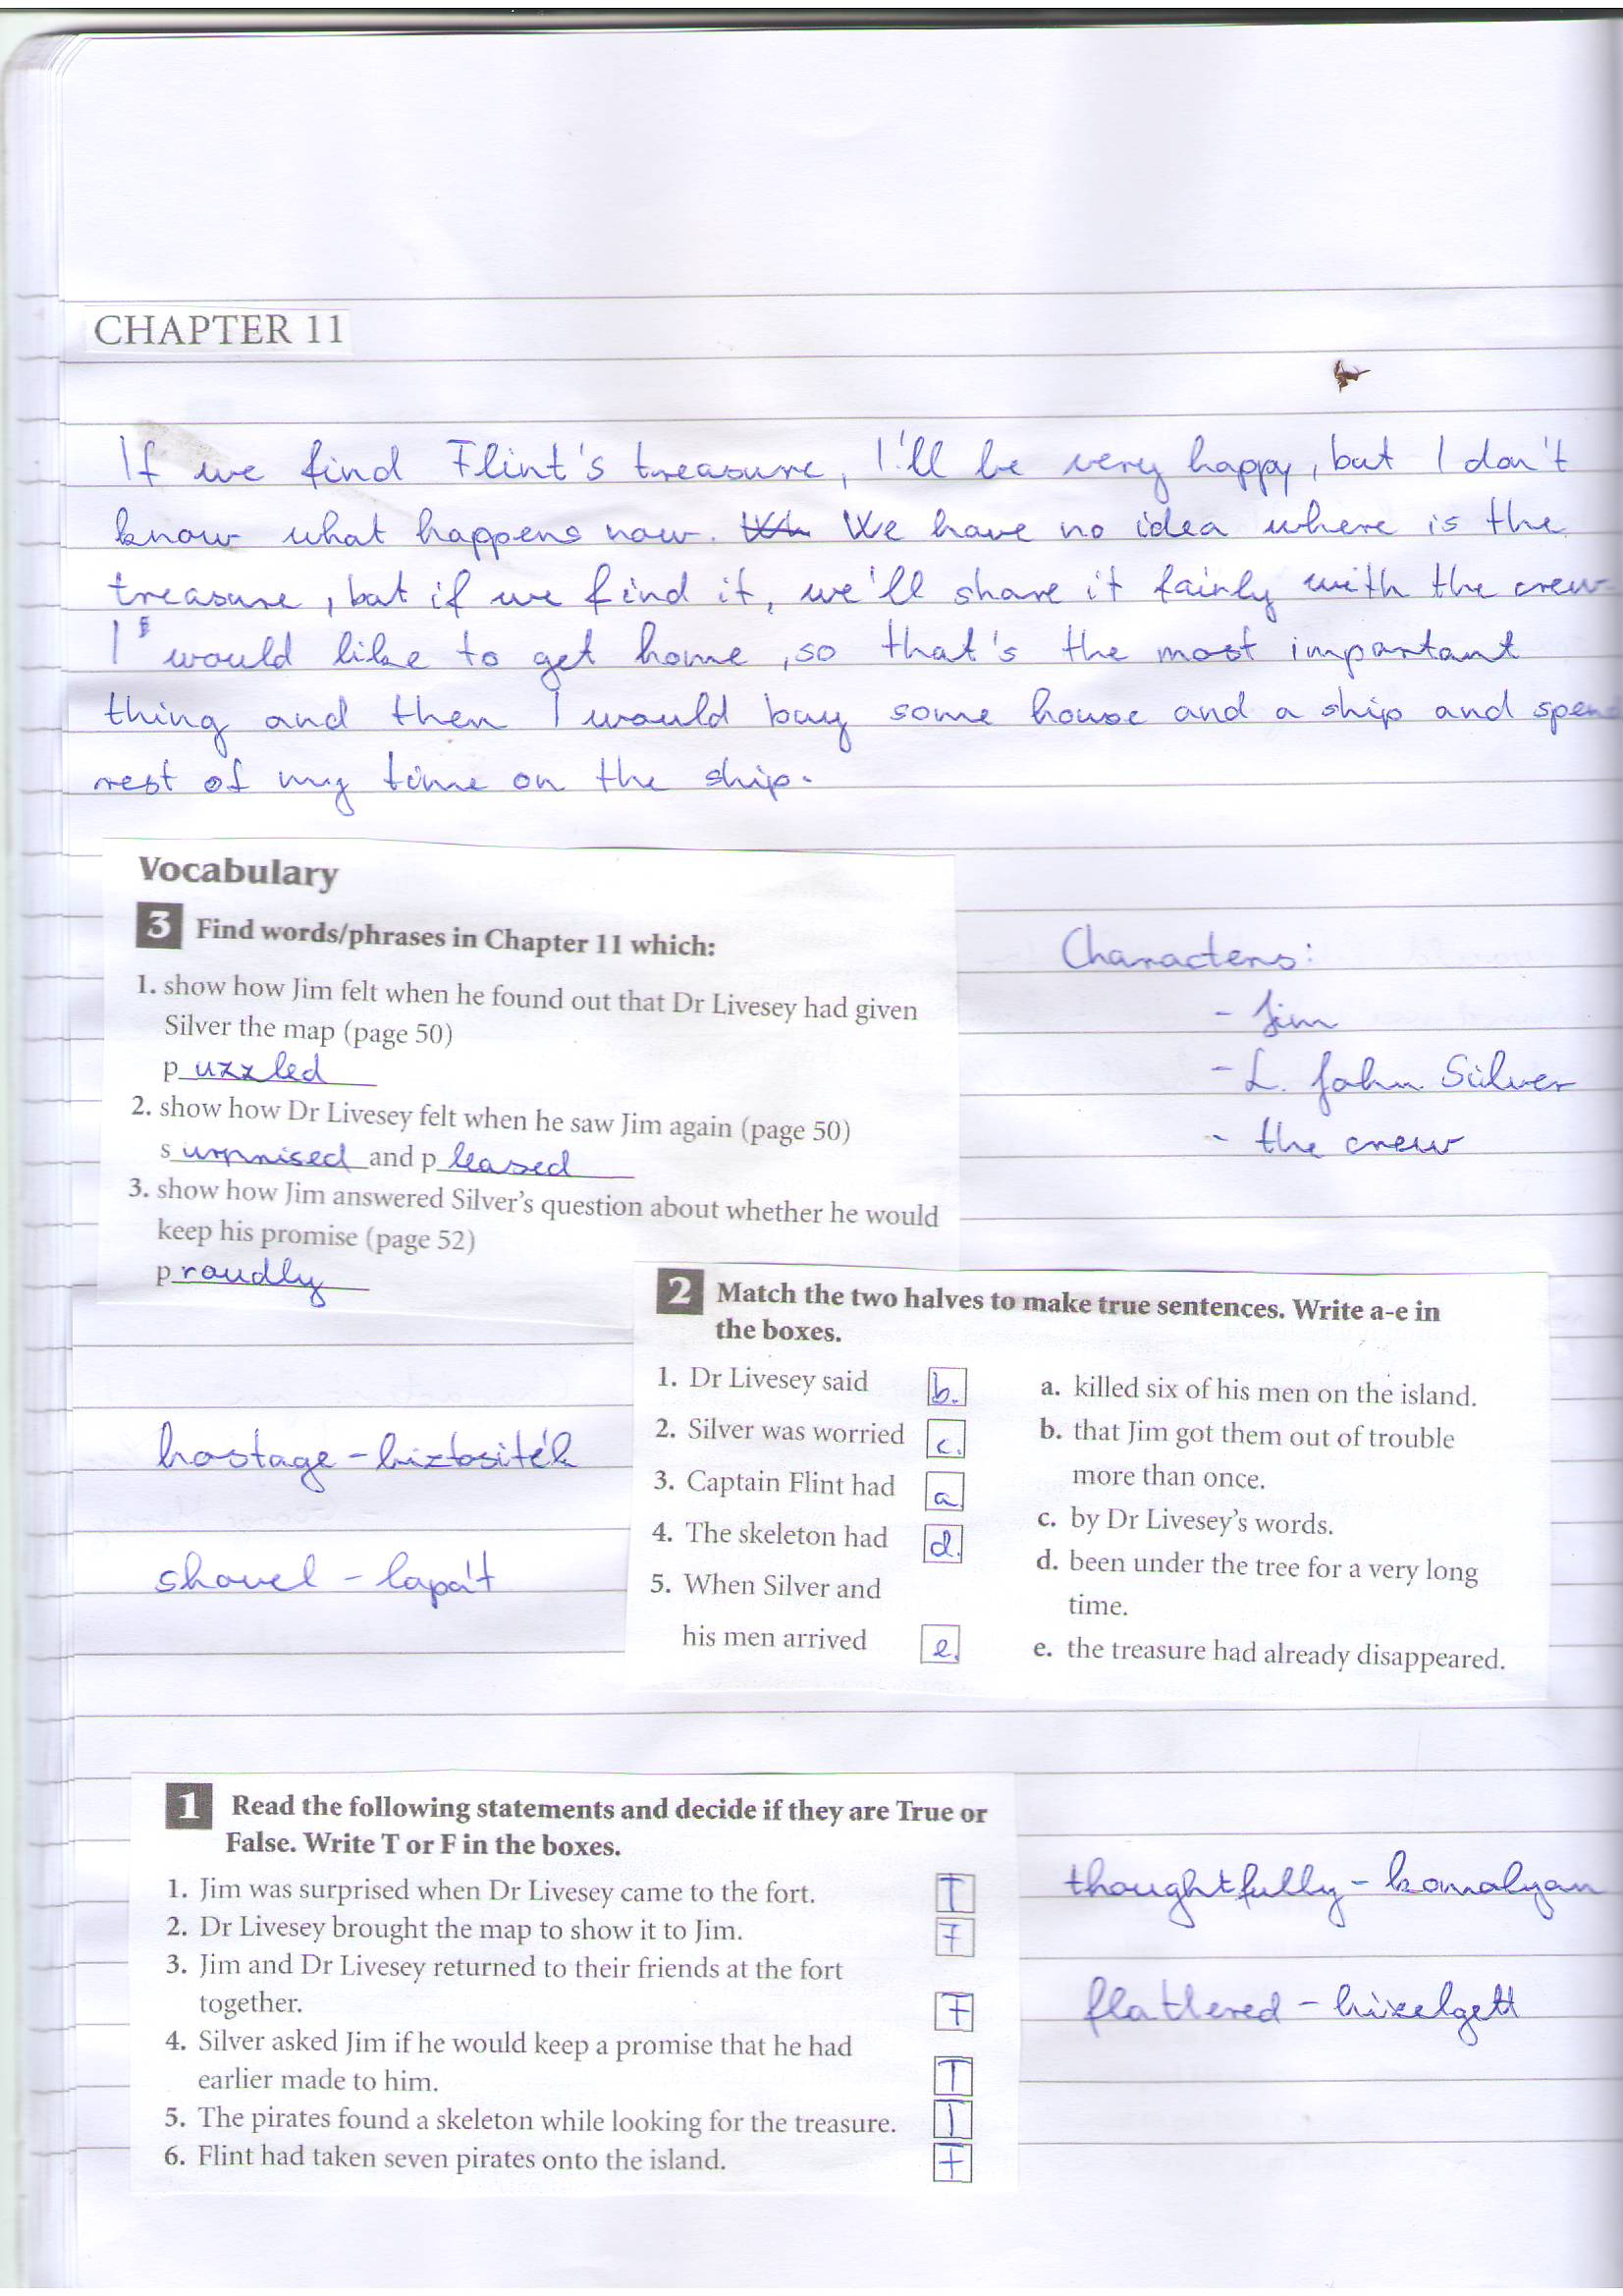 CHAPTER 11
If we find Flint's treasure, I'll be very happy, but I don't
know what happens now. We have no idea where is the
treasure, but if we find it, we'll share it fairly with the crew
I would like to get home, so that's the most important
thing and then I would buy some house and a ship and spen
rest of my time on the ship.
Vocabulary
3 Find words/phrases in Chapter 11 which:
1. show how Jim felt when he found out that Dr Livesey had given
Silver the map (page 50)
puzzled
2. show how Dr Livesey felt when he saw Jim again (page 50)
surprised and pleased
3. show how Jim answered Silver's question about whether he would
keep his promise (page 52)
proudly
Characters:
- Jim
- L. John Silver
- the crew
2 Match the two halves to make true sentences. Write a-e in
the boxes.
1. Dr Livesey said b.
2. Silver was worried c.
3. Captain Flint had a
4. The skeleton had d.
5. When Silver and
his men arrived e.
a. killed six of his men on the island.
b. that Jim got them out of trouble
more than once.
c. by Dr Livesey's words.
d. been under the tree for a very long
time.
e. the treasure had already disappeared.
hostage - biztosíték
shovel - lapát
1 Read the following statements and decide if they are True or
False. Write T or F in the boxes.
1. Jim was surprised when Dr Livesey came to the fort. T
2. Dr Livesey brought the map to show it to Jim. F
3. Jim and Dr Livesey returned to their friends at the fort
together. F
4. Silver asked Jim if he would keep a promise that he had
earlier made to him. T
5. The pirates found a skeleton while looking for the treasure. T
6. Flint had taken seven pirates onto the island. F
thoughtfully - komolyan
flattered - hízelgett